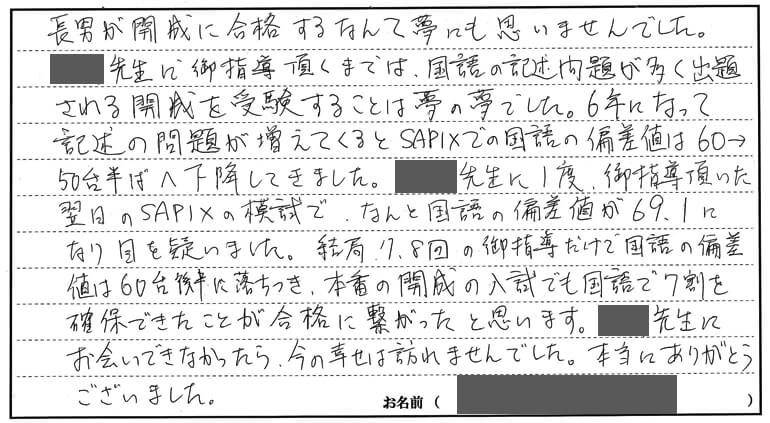 長男が開成に合格するなんて夢にも思いませんでした。
先生に御指導頂くまでは、国語の記述問題が多く出題
される開成を受験することは夢の夢でした。6年になって
記述の問題が増えてくるとSAPIXでの国語の偏差値は60→
50台半ばへ下降してきました。先生に1度、御指導頂いた
翌日のSAPIXの模試で、なんと国語の偏差値が69.1に
なり目を疑いました。結局、7、8回の御指導だけで国語の偏差
値は60台後半に落ちつき、本番の開成の入試でも国語で7割を
確保できたことが合格に繋がったと思います。先生に
お会いできなかったら、今の幸せは訪れませんでした。本当にありがとう
ございました。
お名前（　）